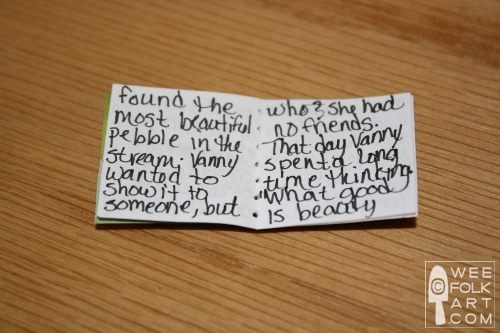 found the
most beautiful
pebble in the
stream. Vanny
wanted to
show it to
someone, but
who? she had
no friends.
That day Vanny
spent a long
time thinking.
"What good
is beauty
WEE
FOLK
ART
.COM
©